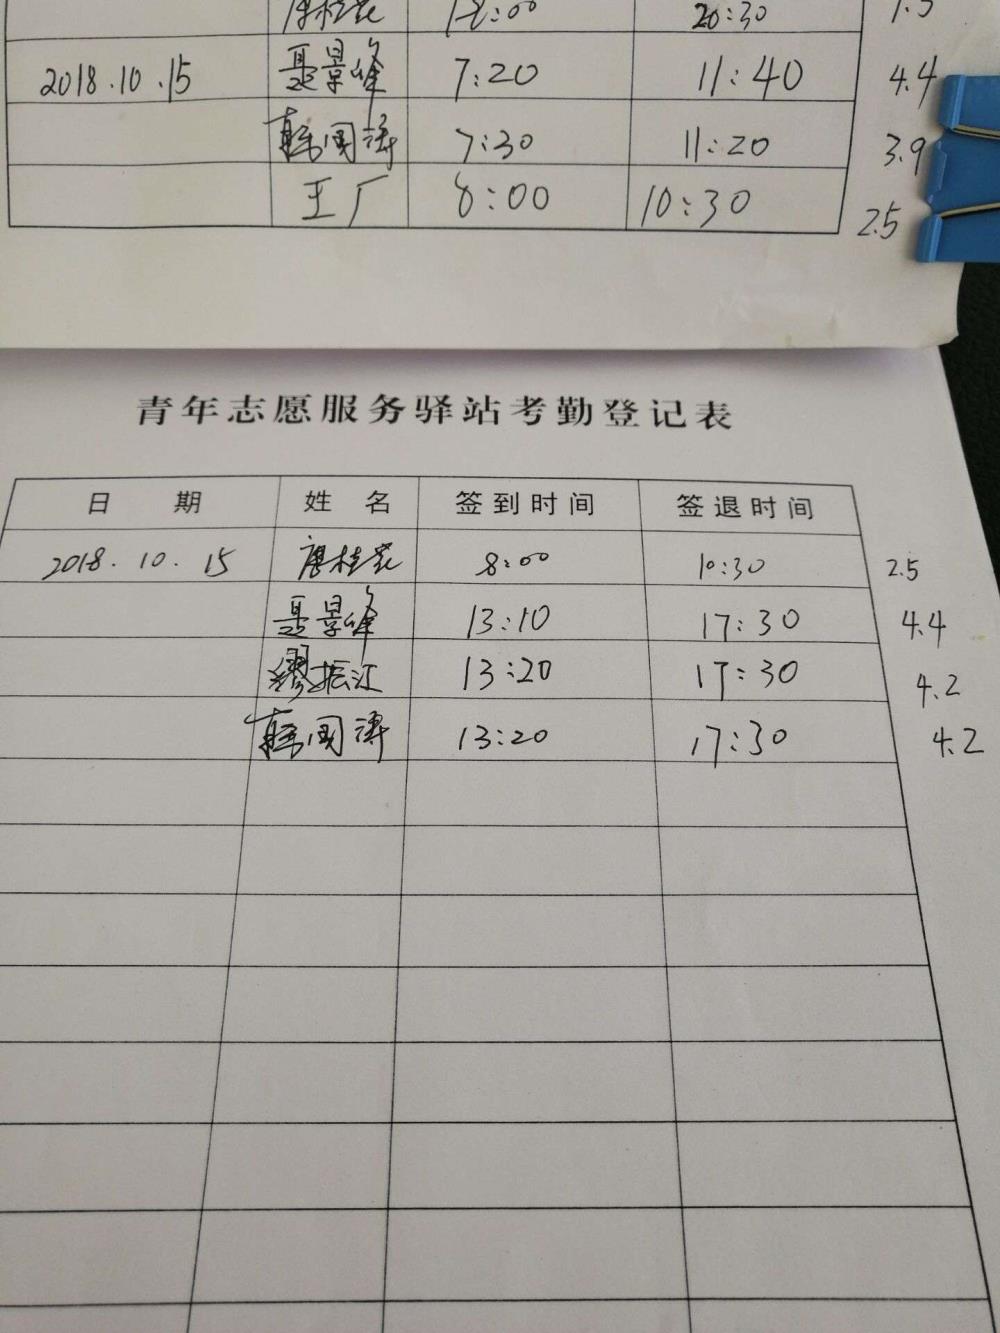 唐桂花 18:00 20:30
2018.10.15 聂景峰 7:20 11:40 4.4
韩国涛 7:30 11:20 3.9
王厂 8:00 10:30 2.5
青年志愿服务驿站考勤登记表
日 期 姓 名 签到时间 签退时间
2018.10.15 唐桂花 8:00 10:30 2.5
聂景峰 13:10 17:30 4.4
缪振江 13:20 17:30 4.2
韩国涛 13:20 17:30 4.2